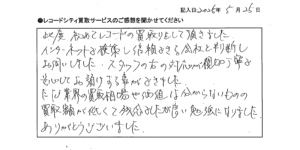 記入日 2026年 5月 25日
●レコードシティ買取サービスのご感想を聞かせてください
此度 初めてレコードの買取りをして頂きました
インターネットで検索し信頼できる会社と判断し
お伺いしました。スタッフの方の対応が親切丁寧で
安心してお預けする事ができました。
ただ業界の買取相場や価値は分からないものの
買取額が低くて残念でしたが良い勉強になりました。
ありがとうございました。